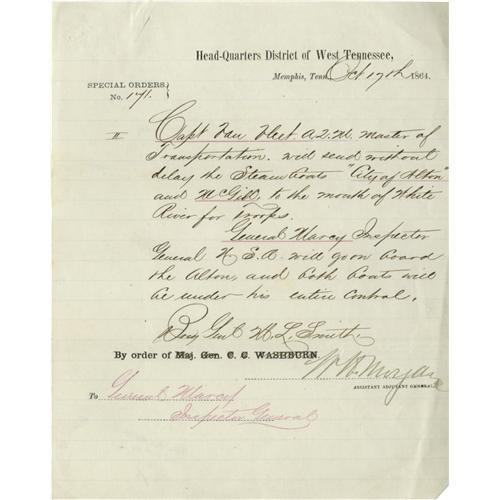 Head-Quarters District of West Tennessee,
Memphis, Tenn., Oct 17th 1864.
SPECIAL ORDERS,
No. 171.
II
Capt Van Vleet A.Q.M. Master of
Transportation. will send without
delay the Steam boats "City of Alton"
and McGill, to the mouth of White
River for troops.
General Marcy Inspector
General U.S.A. will go on board
the Alton, and both boats will
be under his entire control.
Brig Genl M. L. Smith,
By order of Maj. Gen. C. C. WASHBURN.
W. H. Morgan
ASSISTANT ADJUTANT GENERAL.
To General Marcy
Inspector General